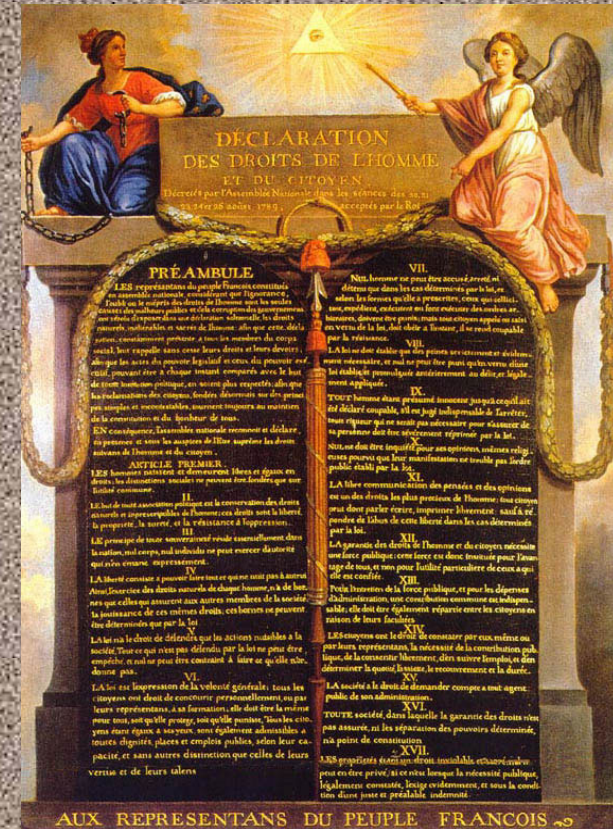 DÉCLARATION
DES DROITS DE L'HOMME
ET DU CITOYEN
Décretés par l'Assemblée Nationale dans les séances des 20, 21
23, 24 et 26 août 1789, acceptés par le Roi
PRÉAMBULE
LES représentans du peuple Francois, constitués
en assemblée nationale, considérant que l'ignorance,
l'oubli ou le mépris des droits de l'homme sont les seules
causes des malheurs publics et de la corruption des gouvernemens
ont résolu d'exposer dans une déclaration solemnelle, les droits
naturels, inaliénables et sacrés de l'homme; afin que cette décla
ration, constamment présente a tous les membres du corps
social, leur rappelle sans cesse leurs droits et leurs devoirs;
afin que les actes du pouvoir legislatif et ceux du pouvoir exé
cutif, pouvant être a chaque instant comparés avec le but
de toute institution politique, en soient plus respectés; afin que
les reclamations des citoyens, fondées désormais sur des princi
pes simples et incontestables, tournent toujours au maintien
de la constitution et du bonheur de tous.
EN conséquence, l'assemblée nationale reconnoit et déclare
en presence et sous les auspices de l'Etre suprême les droits
suivans de l'homme et du citoyen.
ARTICLE PREMIER.
LES hommes naissent et demeurent libres et égaux en
droits. les distinctions sociales ne peuvent être fondées que sur
l'utilité commune.
II.
LE but de toute association politique est la conservation des droits
naturels et inprescriptibles de l'homme; ces droits sont la liberté,
la propriété, la sureté, et la résistance à l'oppression.
III.
LE principe de toute souveraineté réside essentiellement dans
la nation, nul corps, nul individu ne peut exercer d'autorité
qui n'en émane expressément.
IV.
LA liberté consiste a pouvoir faire tout ce qui ne nuit pas à autrui
Ainsi, l'exercice des droits naturels de chaque homme, n'a de bor
nes que celles qui assurent aux autres membres de la société
la jouissance de ces mêmes droits; ces bornes ne peuvent
être déterminées que par la loi
V.
LA loi n'a le droit de défendre que les actions nuisibles a la
société. Tout ce qui n'est pas défendu par la loi ne peut être
empêché, et nul ne peut être contraint à faire ce qu'elle n'or
donne pas.
VI.
LA loi est l'expression de la volonté générale; tous les
citoyens ont droit de concourir personnellement, ou par
leurs représentans, à sa formation; elle doit être la même
pour tous, soit qu'elle protege, soit qu'elle punisse. Tous les cito
yens étant égaux à ses yeux, sont également admissibles à
toutes dignités, places et emplois publics, selon leur ca-
pacité, et sans autres distinction que celles de leurs
vertus et de leurs talens
VII.
NUL homme ne peut être accusé, arreté, ni
détenu que dans les cas déterminés par la loi, et
selon les formes qu'elle a prescrites, ceux qui sollici
tent, expédient, exécutent ou font exécuter des ordres ar
bitraires, doivent être punis; mais tout citoyen appelé ou saisi
en vertu de la loi, doit obéir a l'instant, il se rend coupable
par la résistance.
VIII.
LA loi ne doit établir que des peines strictement et évidem-
ment nécessaire, et nul ne peut être puni qu'en vertu d'une
loi établie et promulguée antérieurement au délit, et légale-
ment appliquée.
IX.
TOUT homme étant présumé innocent jusqu'a ce qu'il ait
été déclaré coupable, s'il est jugé indispensable de l'arrêter,
toute rigueur qui ne serait pas nécessaire pour s'assurer de
sa personne doit être sévèrement réprimée par la loi.
X.
NUL ne doit être inquiété pour ses opinions, mêmes religi
euses pourvu que leur manifestation ne trouble pas l'ordre
public établi par la loi.
XI.
LA libre communication des pensées et des opinions
est un des droits les plus precieux de l'homme; tout citoyen
peut dont parler écrire, imprimer librement: sauf à ré
pondre de l'abus de cette liberté dans les cas déterminés
par la loi.
XII.
LA garantie des droits de l'homme et du citoyen nécessite
une force publique; cette force est donc instituée pour l'avan
tage de tous, et non pour l'utilité particuliere de ceux a qui
elle est confiée.
XIII.
Pour l'entretien de la force publique, et pour les dépenses
d'administration, une contribution commune est indispen-
sable; elle doit être également répartie entre les citoyens en
raison de leurs facultées
XIV.
LES citoyens ont le droit de constater par eux même ou
par leurs représentans, la nécessité de la contribution pub-
lique, de la consentir librement, d'en suivre l'emploi, et d'en
déterminer la quotité, l'assiette, le recouvrement et la durée.
XV.
LA société a le droit de demander compte a tout agent
public de son administration.
XVI.
TOUTE société, dans laquelle la garantie des droits n'est
pas assurée, ni les séparation des pouvoirs déterminée,
n'a point de constitution
XVII.
LES proprietés étant un droit inviolable et sacré, nul ne
peut en être privé, si ce n'est lorsque la nécessité publique,
légalement constatée, l'exige evidemment, et sous la condi
tion d'une juste et préalable indemnité.
AUX REPRESENTANS DU PEUPLE FRANCOIS